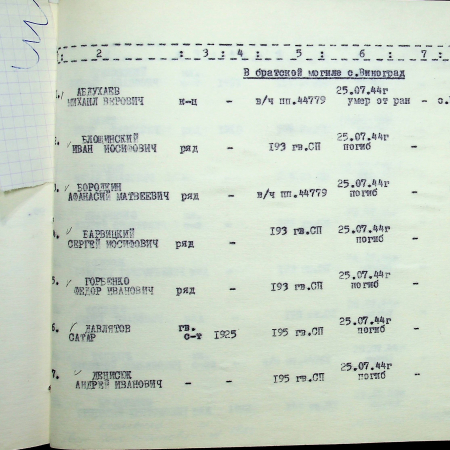 : 2 : 3 : 4 : 5 : 6 : 7 :
В братской могиле с.Виноград
АБДУХАЕВ 25.07.44г
МИХАИЛ ВЕРОВИЧ н-ц - в/ч пп.44779 умер от ран - с.
БЛОЩИНСКИЙ 25.07.44г
ИВАН ИОСИФОВИЧ ряд - 193 гв.СП погиб -
БОРОДКИН 25.07.44г
АФАНАСИЙ МАТВЕЕВИЧ ряд - в/ч пп.44779 погиб -
БАРВИЦКИЙ 193 гв.СП 25.07.44г
СЕРГЕЙ ИОСИФОВИЧ ряд - погиб -
5. ГОРБЕНКО 25.07.44г
ФЕДОР ИВАНОВИЧ ряд - 193 гв.СП погиб -
6. ДАВЛЯТОВ гв. 25.07.44г
САТАР с-т 1925 195 гв.СП погиб -
7. ДЕНИСЮК 25.07.44г
АНДРЕЙ ИВАНОВИЧ - - 195 гв.СП погиб -